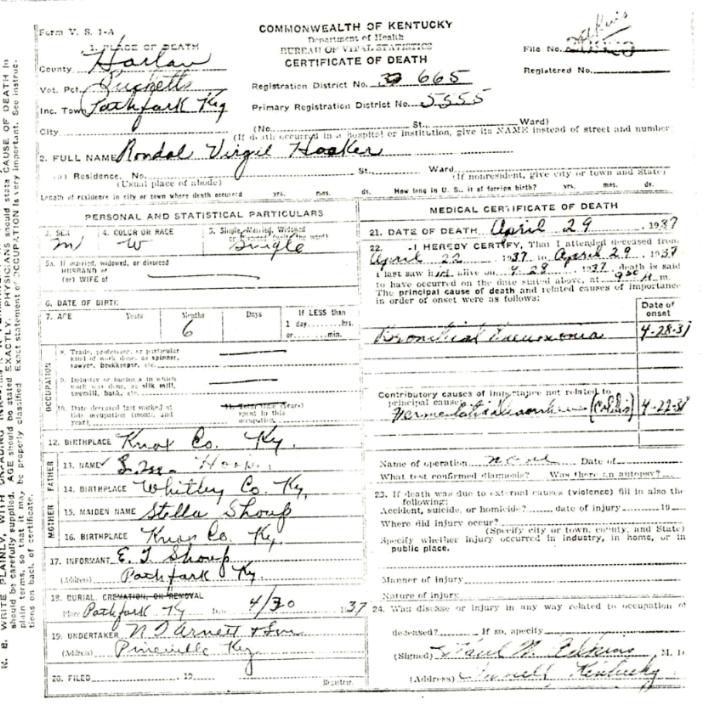 Form V. S. 1-A
COMMONWEALTH OF KENTUCKY
Department of Health
BUREAU OF VITAL STATISTICS
CERTIFICATE OF DEATH
File No.
Registered No.
1. PLACE OF DEATH
County Harlan
Vot. Pct. Pucketts
Inc. Town Pathfork Ky
City
Registration District No. 665
Primary Registration District No. 5555
(No. St. Ward)
(If death occurred in a hospital or institution, give its NAME instead of street and number
2. FULL NAME Rondal Virgil Hooker
(a) Residence. No. St. Ward.
(Usual place of abode) (If nonresident, give city or town and State)
Length of residence in city or town where death occurred yrs. mos. ds. How long in U. S., if of foreign birth? yrs. mos. ds.
PERSONAL AND STATISTICAL PARTICULARS
3. SEX 4. COLOR OR RACE 5. Single, Married, Widowed
m W Single
5a. If married, widowed, or divorced
HUSBAND of
(or) WIFE of
6. DATE OF BIRTH
7. AGE Years Months Days If LESS than
6 1 day hrs.
or min.
OCCUPATION
8. Trade, profession, or particular
kind of work done, as spinner,
sawyer, bookkeeper, etc.
9. Industry or business in which
work was done, as silk mill,
sawmill, bank, etc.
10. Date deceased last worked at
this occupation (month and
year)
11. Total time (years)
spent in this
occupation
12. BIRTHPLACE Knox Co. Ky.
FATHER
13. NAME
14. BIRTHPLACE Whitley Co. Ky.
MOTHER
15. MAIDEN NAME Stella Shoup
16. BIRTHPLACE Knox Co. Ky.
17. INFORMANT E. T. Shoup
(Address) Pathfork Ky.
18. BURIAL, CREMATION, OR REMOVAL
Place Pathfork Ky Date 4/30 1937
19. UNDERTAKER N. T Arnett & Son
(Address) Pineville Ky.
20. FILED 19
Registrar.
MEDICAL CERTIFICATE OF DEATH
21. DATE OF DEATH April 29, 1937
22. I HEREBY CERTIFY, That I attended deceased from
April 22, 1937 to April 29, 1937
I last saw him alive on 4-28, 1937, death is said
to have occurred on the date stated above, at m.
The principal cause of death and related causes of importance
in order of onset were as follows:
Date of
onset
Bronchial Pneumonia 4-28-37
Contributory causes of importance not related to
principal cause:
(Colitis) 4-22-37
Name of operation none Date of
What test confirmed diagnosis? Was there an autopsy?
23. If death was due to external causes (violence) fill in also the
following:
Accident, suicide, or homicide? date of injury 19
Where did injury occur?
(Specify city or town, county, and State)
Specify whether injury occurred in industry, in home, or in
public place.
Manner of injury
Nature of injury
24. Was disease or injury in any way related to occupation of
deceased? If so, specify
(Signed) M. D.
(Address) Kentucky
N. B. WRITE PLAINLY, WITH UNFADING
should be carefully supplied. AGE should be stated EXACTLY. PHYSICIANS should state CAUSE OF DEATH in
plain terms, so that it may be properly classified. Exact statement of OCCUPATION is very important. See instruc-
tions on back of certificate.